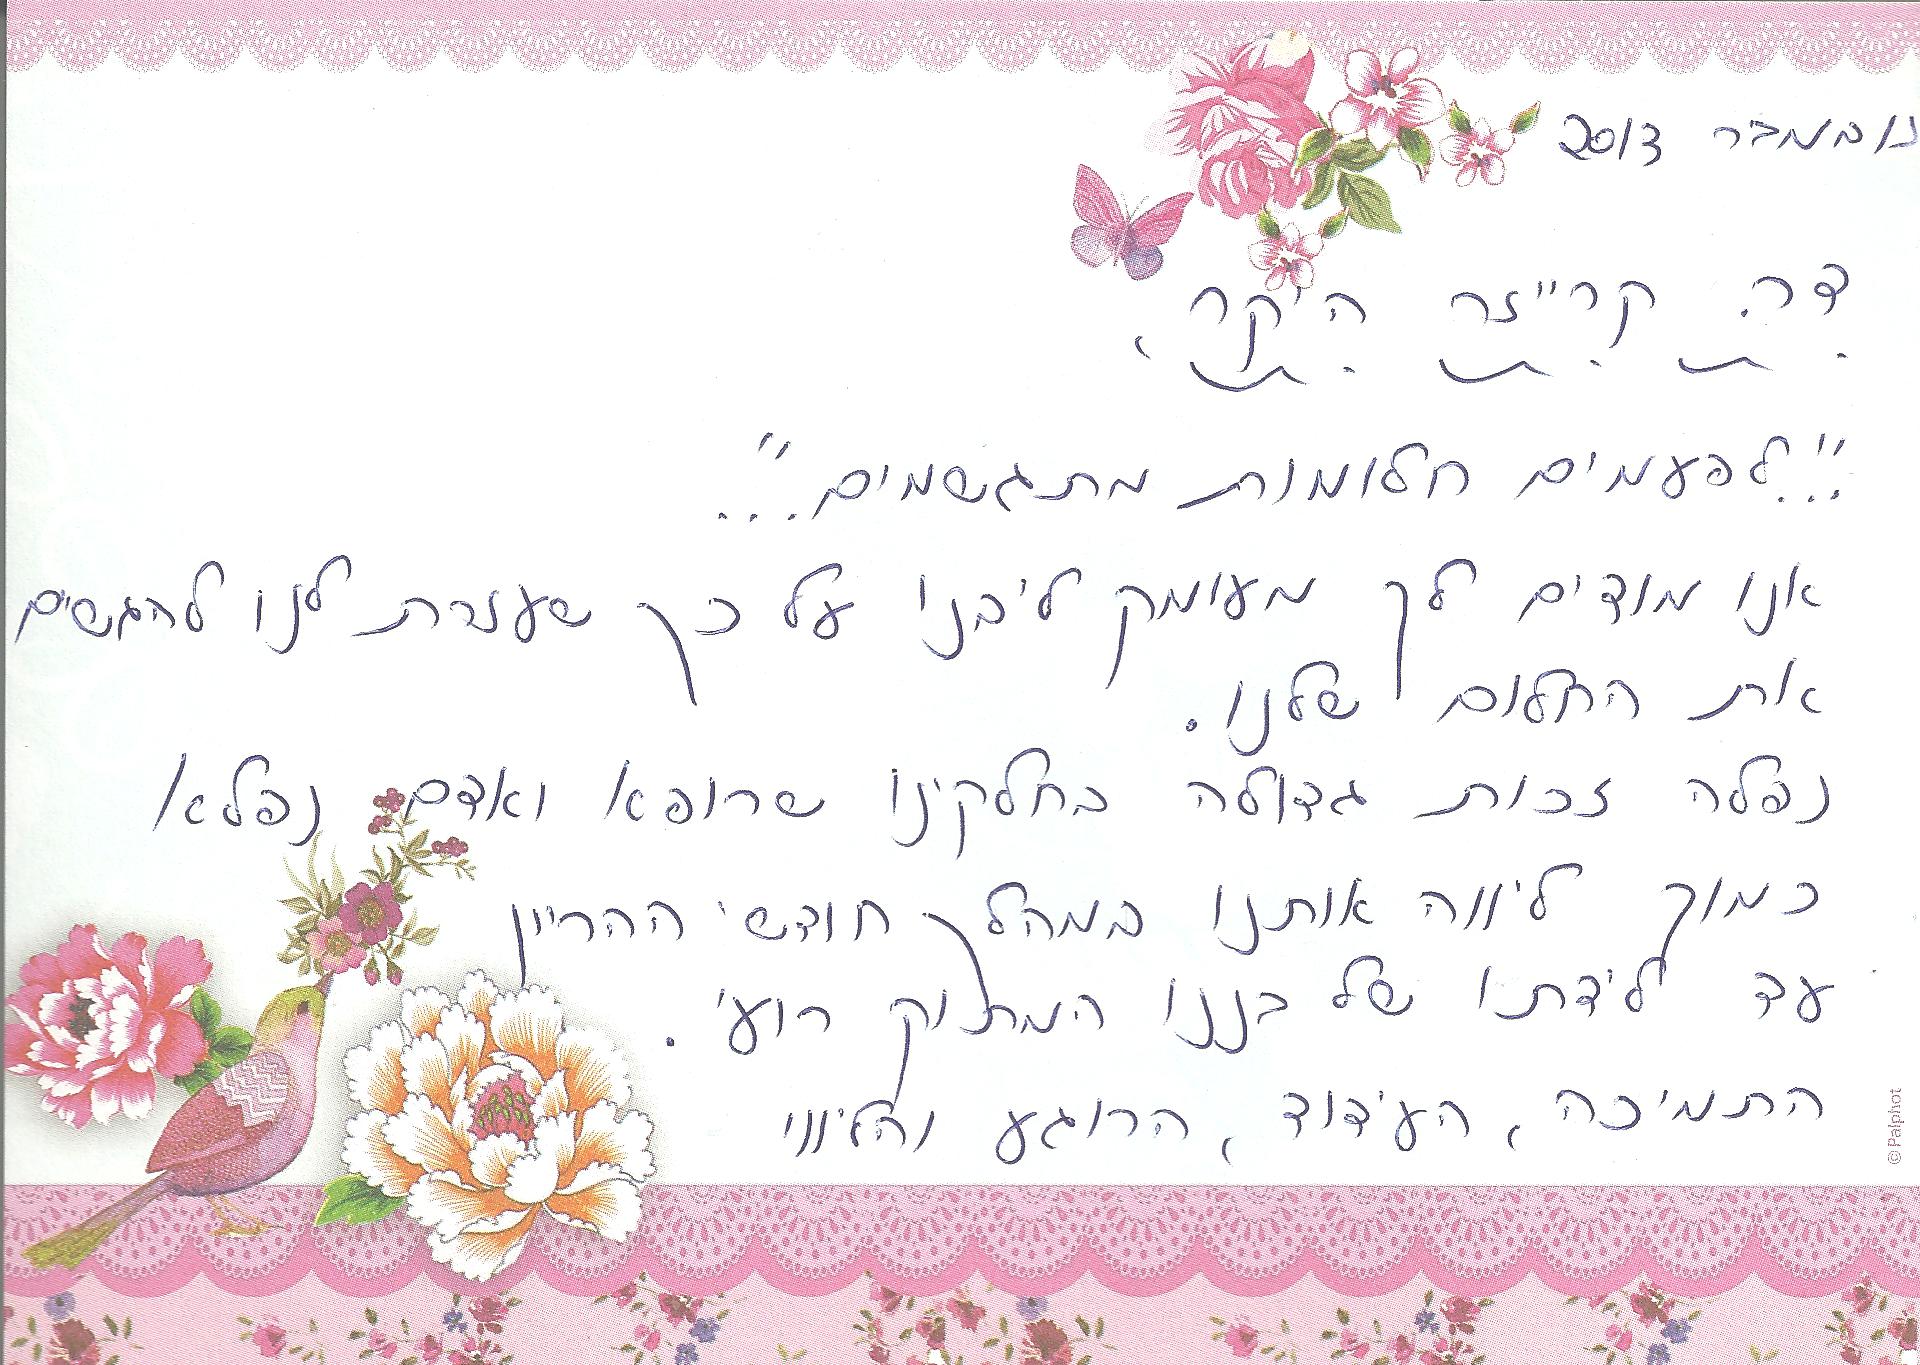 נובמבר 2013
דר. קרייזר היקר,
"...לפעמים חלומות מתגשמים..."
אנו מודים לך מעומק ליבנו על כך שעזרת לנו להגשים
את החלום שלנו.
נפלה זכות גדולה בחלקינו שרופא ואדם נפלא
כמוך ליווה אותנו במהלך חודשי ההריון
עד לידתו של בננו המתוק רועי.
התמיכה, העידוד, הרוגע והליווי
© Palphot